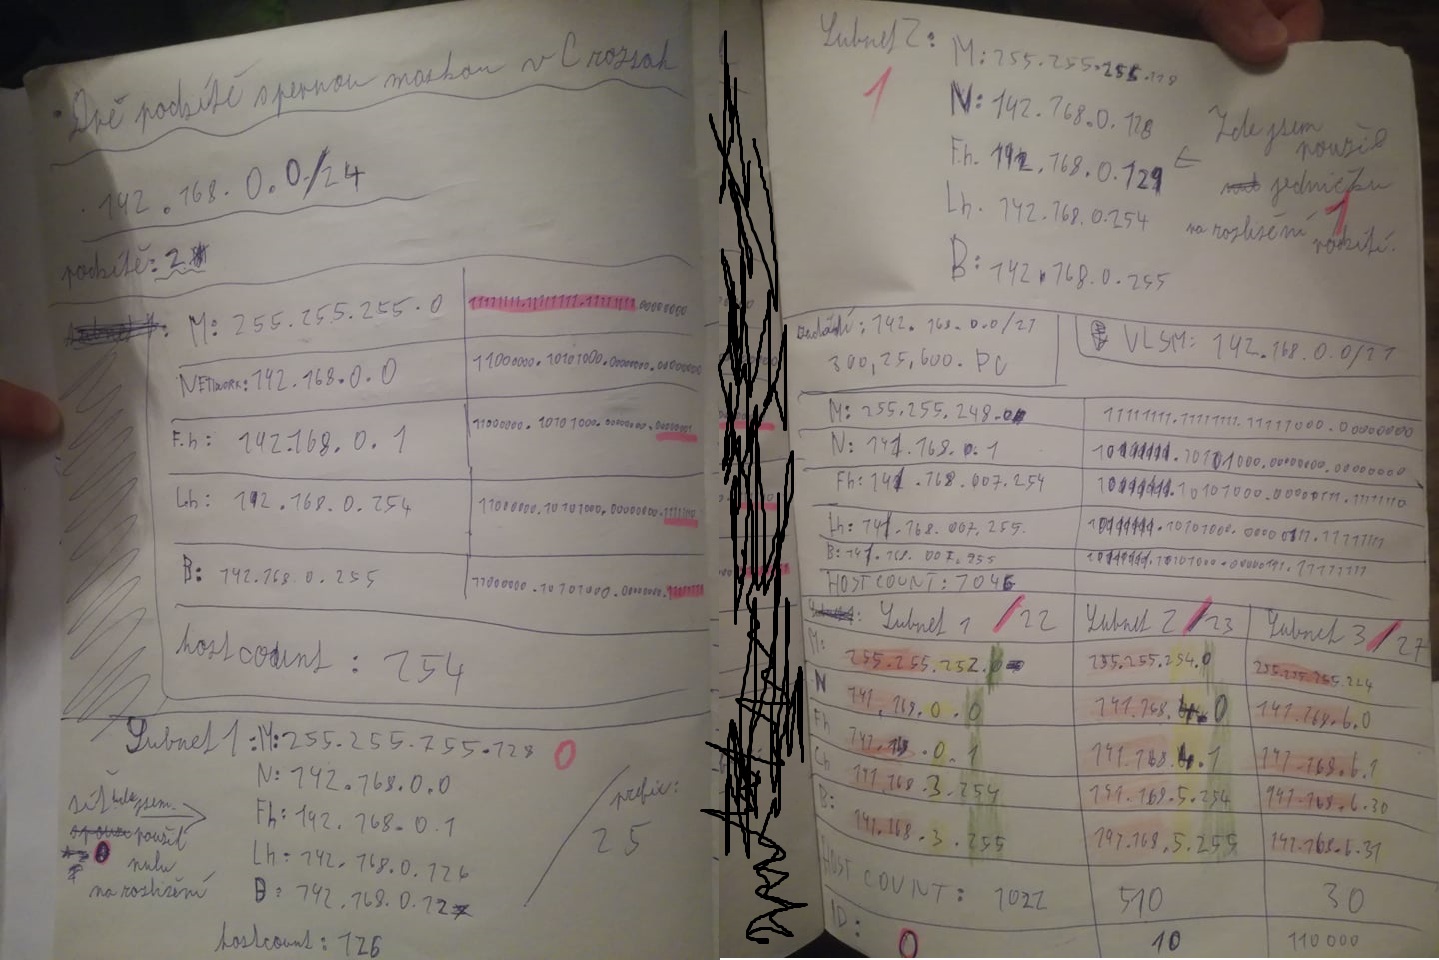 Dvě podsítě s pevnou maskou v C rozsah
192.168.0.0/24
podsítě: 2
M: 255.255.255.0 11111111.11111111.11111111.00000000
NETWORK: 192.168.0.0 11000000.10101000.00000000.00000000
F.h: 192.168.0.1 11000000.10101000.00000000.00000001
Lh: 192.168.0.254 11000000.10101000.00000000.11111110
B: 192.168.0.255 11000000.10101000.00000000.11111111
host count: 254
Subnet 1: M: 255.255.255.128 0
N: 192.168.0.0
Fh: 192.168.0.1
Lh: 192.168.0.126
B: 192.168.0.127
host count: 126
zde jsem
použil
0 nulu
na rozlišení
prefix:
25
Subnet 2: M: 255.255.255.128
1
N: 192.168.0.128
F.h. 192.168.0.129
Lh. 192.168.0.254
B: 192.168.0.255
Zde jsem
použil
jedničku 1
na rozlišení podsítí.
zadání: 192.168.0.0/21
300, 25, 600. PC
VLSM: 192.168.0.0/21
M: 255.255.248.0 11111111.11111111.11111000.00000000
N: 191.168.0.1
Fh: 191.168.007.254
Lh: 191.168.007.255.
B: 191.168.007.255
HOST COUNT: 2046
Subnet 1 /22 Subnet 2 /23 Subnet 3 /27
M: 255.255.252.0 255.255.254.0 255.255.255.224
N 191.168.0.0 191.168.4.0 191.168.6.0
Fh 191.168.0.1 191.168.4.1 191.168.6.1
Lh 191.168.3.254 191.168.5.254 191.168.6.30
B: 191.168.3.255 191.168.5.255 191.168.6.31
HOST COUNT: 1022 510 30
ID: 0 10 110000